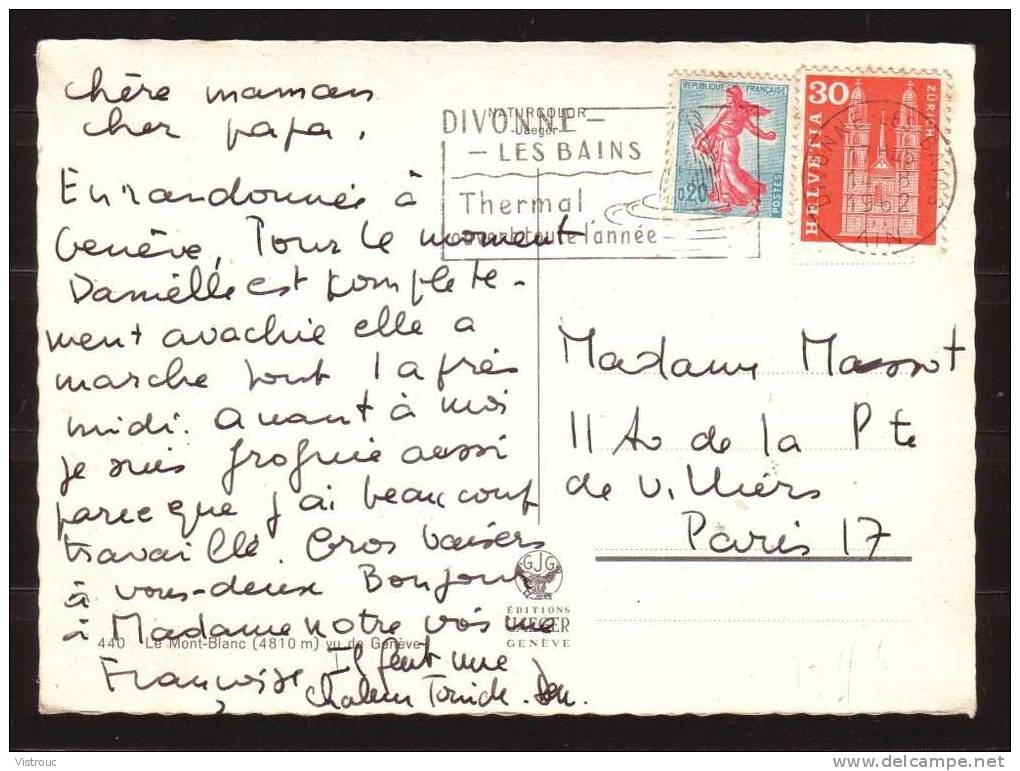 chère maman
cher papa,
En randonnée à
Genève, Pour le moment
Danielle est komplete-
ment avachie elle a
marche tout l après
midi. Quant à moi
je suis grognie aussi
parce que j'ai beaucoup
travaillé. Gros baisers
à vous-deux Bonjour
à Madame notre voisine
Françoise Il fait une
chaleur Torride.
NATURCOLOR
Jaeger
DIVONNE-
-LES BAINS
Thermal
ouvert toute l'année
RÉPUBLIQUE FRANÇAISE
0,20
POSTES
30
HELVETIA
ZÜRICH
DIVONNE-LES-BAINS
1962
AIN
Madame Massot
11 Av de la Pte
de Villiers
Paris 17
GJG
ÉDITIONS
JAEGER
GENÈVE
440 Le Mont-Blanc (4810 m) vu de Genève
Vistrouc
delcampe.net